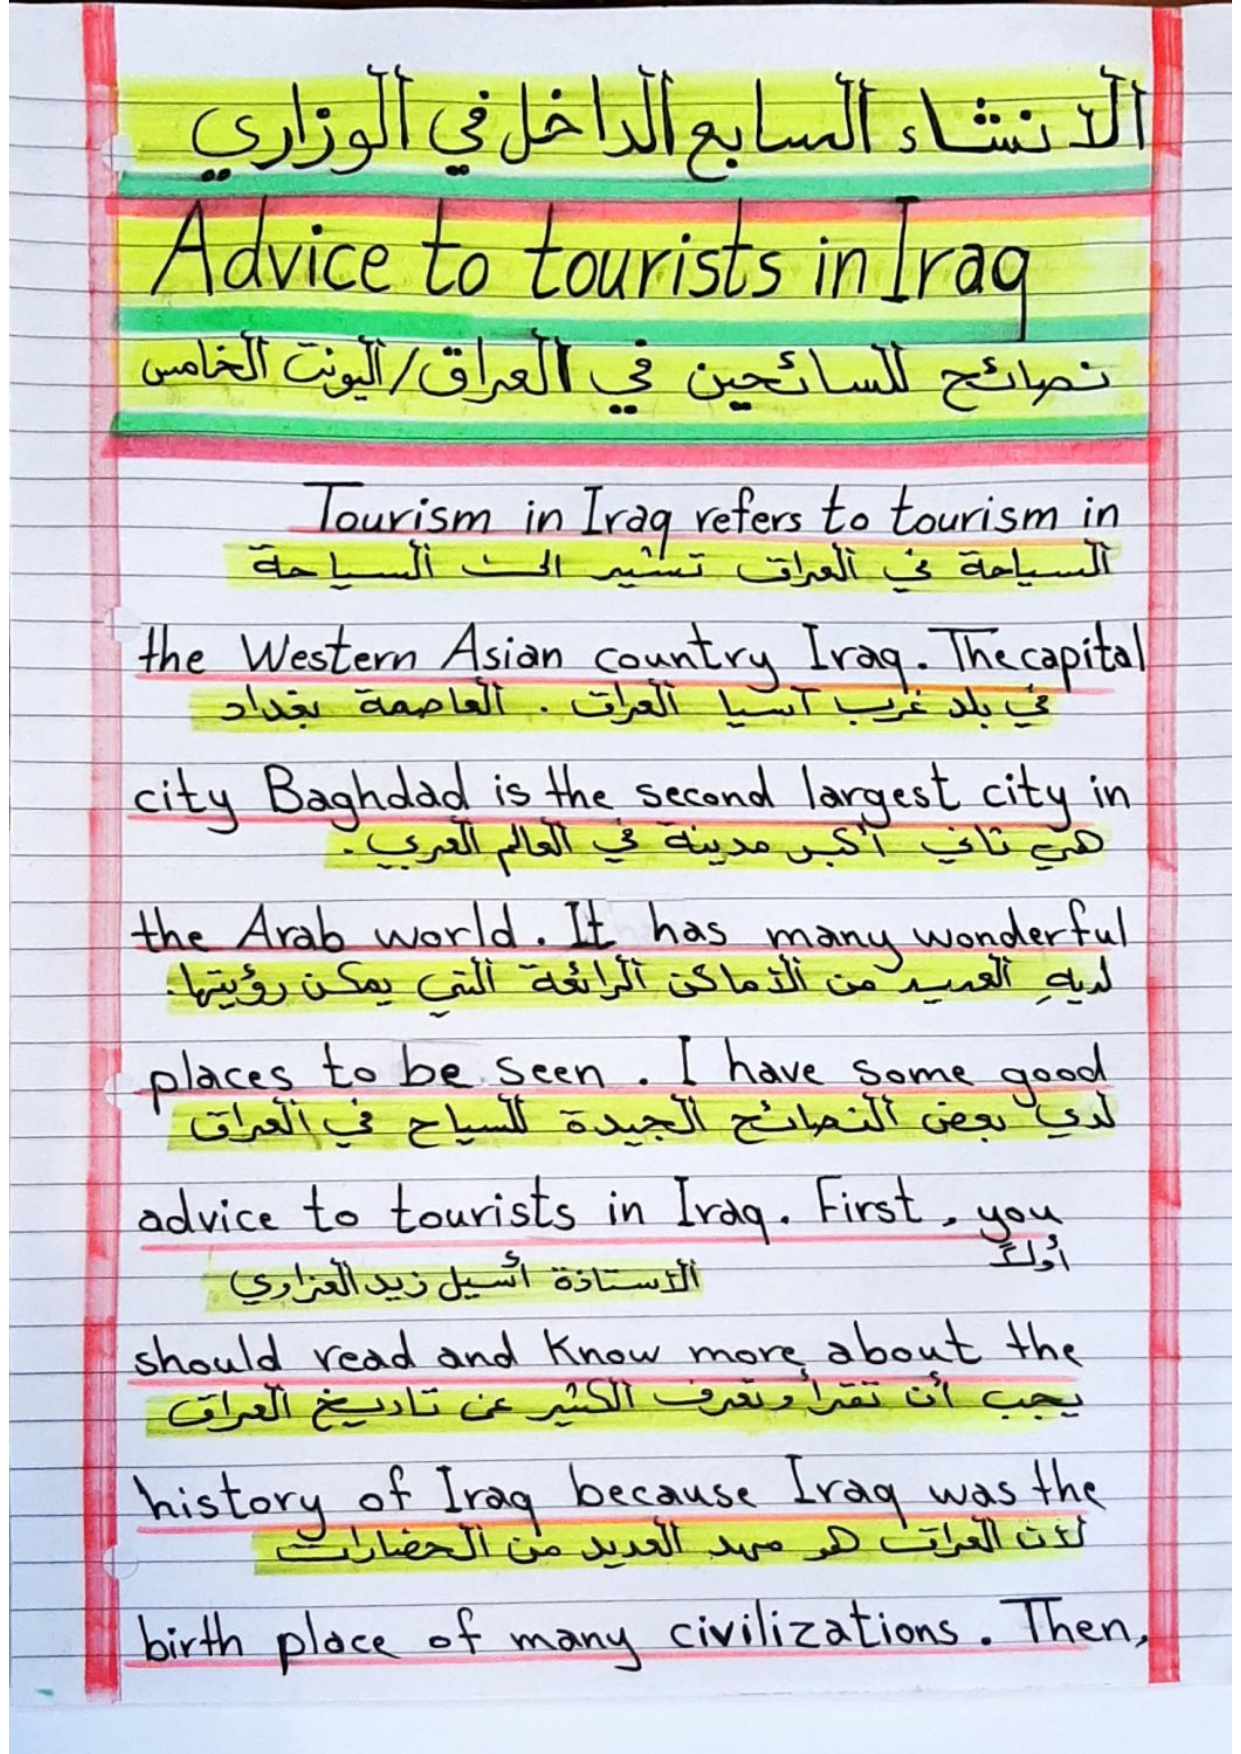 الانشاء السابع الداخل في الوزاري
Advice to tourists in Iraq
نصائح للسائحين في العراق/اليونت الخامس
Tourism in Iraq refers to tourism in
السياحة في العراق تشير الى السياحة
the Western Asian country Iraq. The capital
في بلد غرب آسيا العراق. العاصمة بغداد
city Baghdad is the second largest city in
هي ثاني أكبر مدينة في العالم العربي.
the Arab world. It has many wonderful
لديهِ العديد من الأماكن الرائعة التي يمكن رؤيتها.
places to be seen. I have some good
لدي بعض النصائح الجيدة للسياح في العراق
advice to tourists in Iraq. First, you
أولاً
الأستاذة أسيل زيد العزاوي
should read and Know more about the
يجب أن تقرأ وتعرف الكثير عن تاريخ العراق
history of Iraq because Iraq was the
لأن العراق هو مهد العديد من الحضارات
birth place of many civilizations. Then,